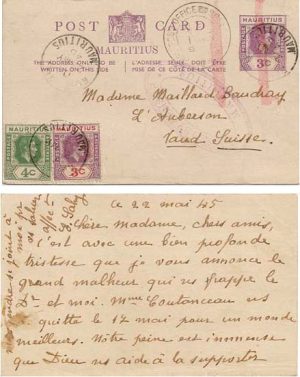 POST CARD
MAURITIUS
THE ADDRESS ONLY TO BE
WRITTEN ON THIS SIDE
L'ADRESSE SEULE DOIT ÊTRE
MISE DE CE CÔTÉ DE LA CARTE
MAURITIUS
3c
MAURITIUS
Madame Maillard Baudray
L'Auberson
Vaud Suisse.
MAURITIUS
4c
MAURITIUS
3c
ce 22 mai 45
Chère Madame, chers amis,
c'est avec une bien profonde
tristesse que je vous annonce le
grand malheur qui ns frappe le
Dr et moi. Mme Coutanceau ns
quitte le 12 mai pour un monde
meilleurs. Notre peine est immense
que Dieu ns aide à la supporter